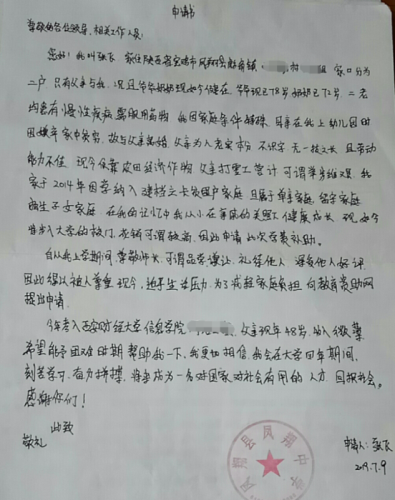 申请书
尊敬的各位领导、相关工作人员:
您好!我叫张飞 家住陕西省宝鸡市凤翔县 镇 村 组 家口分为
二户 只有父亲与我 况且爷爷奶奶现如今健在 爷爷现已78岁 奶奶已72岁 二老
均患有慢性疾病 需服用药物 我因家庭条件 母亲在我上幼儿园时
因嫌弃家中贫穷 故与父亲离婚 父亲为人老实本分 不识字 无一技之长 且劳动
能力不佳 现今仅靠 田经济作物 父亲打零工 计 可谓举步维艰 我
家于2014年因学纳入建档立卡贫困户家庭 且属于单亲家庭 留守家庭
子女家庭 在我的记忆中我从小在 的关照下健康成长 现如今
步入大学的校门 花销可谓较高 因此申请此次学费补助。
自从我上学期间 尊敬师长 可谓品学谦让 礼待他人 深受他人好评
因此得以被人尊重 现今 迫于生活压力 为了减轻家庭负担 向教育资助网
提出申请。
今年考入西安财经大学信息学院 父亲现年48岁 收入微薄
希望能予困难时期 帮助我一下 我更加相信 我会在大学四年期间
刻苦学习 奋力拼搏 将来成为一名对国家对社会有用的人才 回报社会。
感谢你们!
此致
敬礼
凤翔县凤翔中学
申请人:张飞
2019.7.9